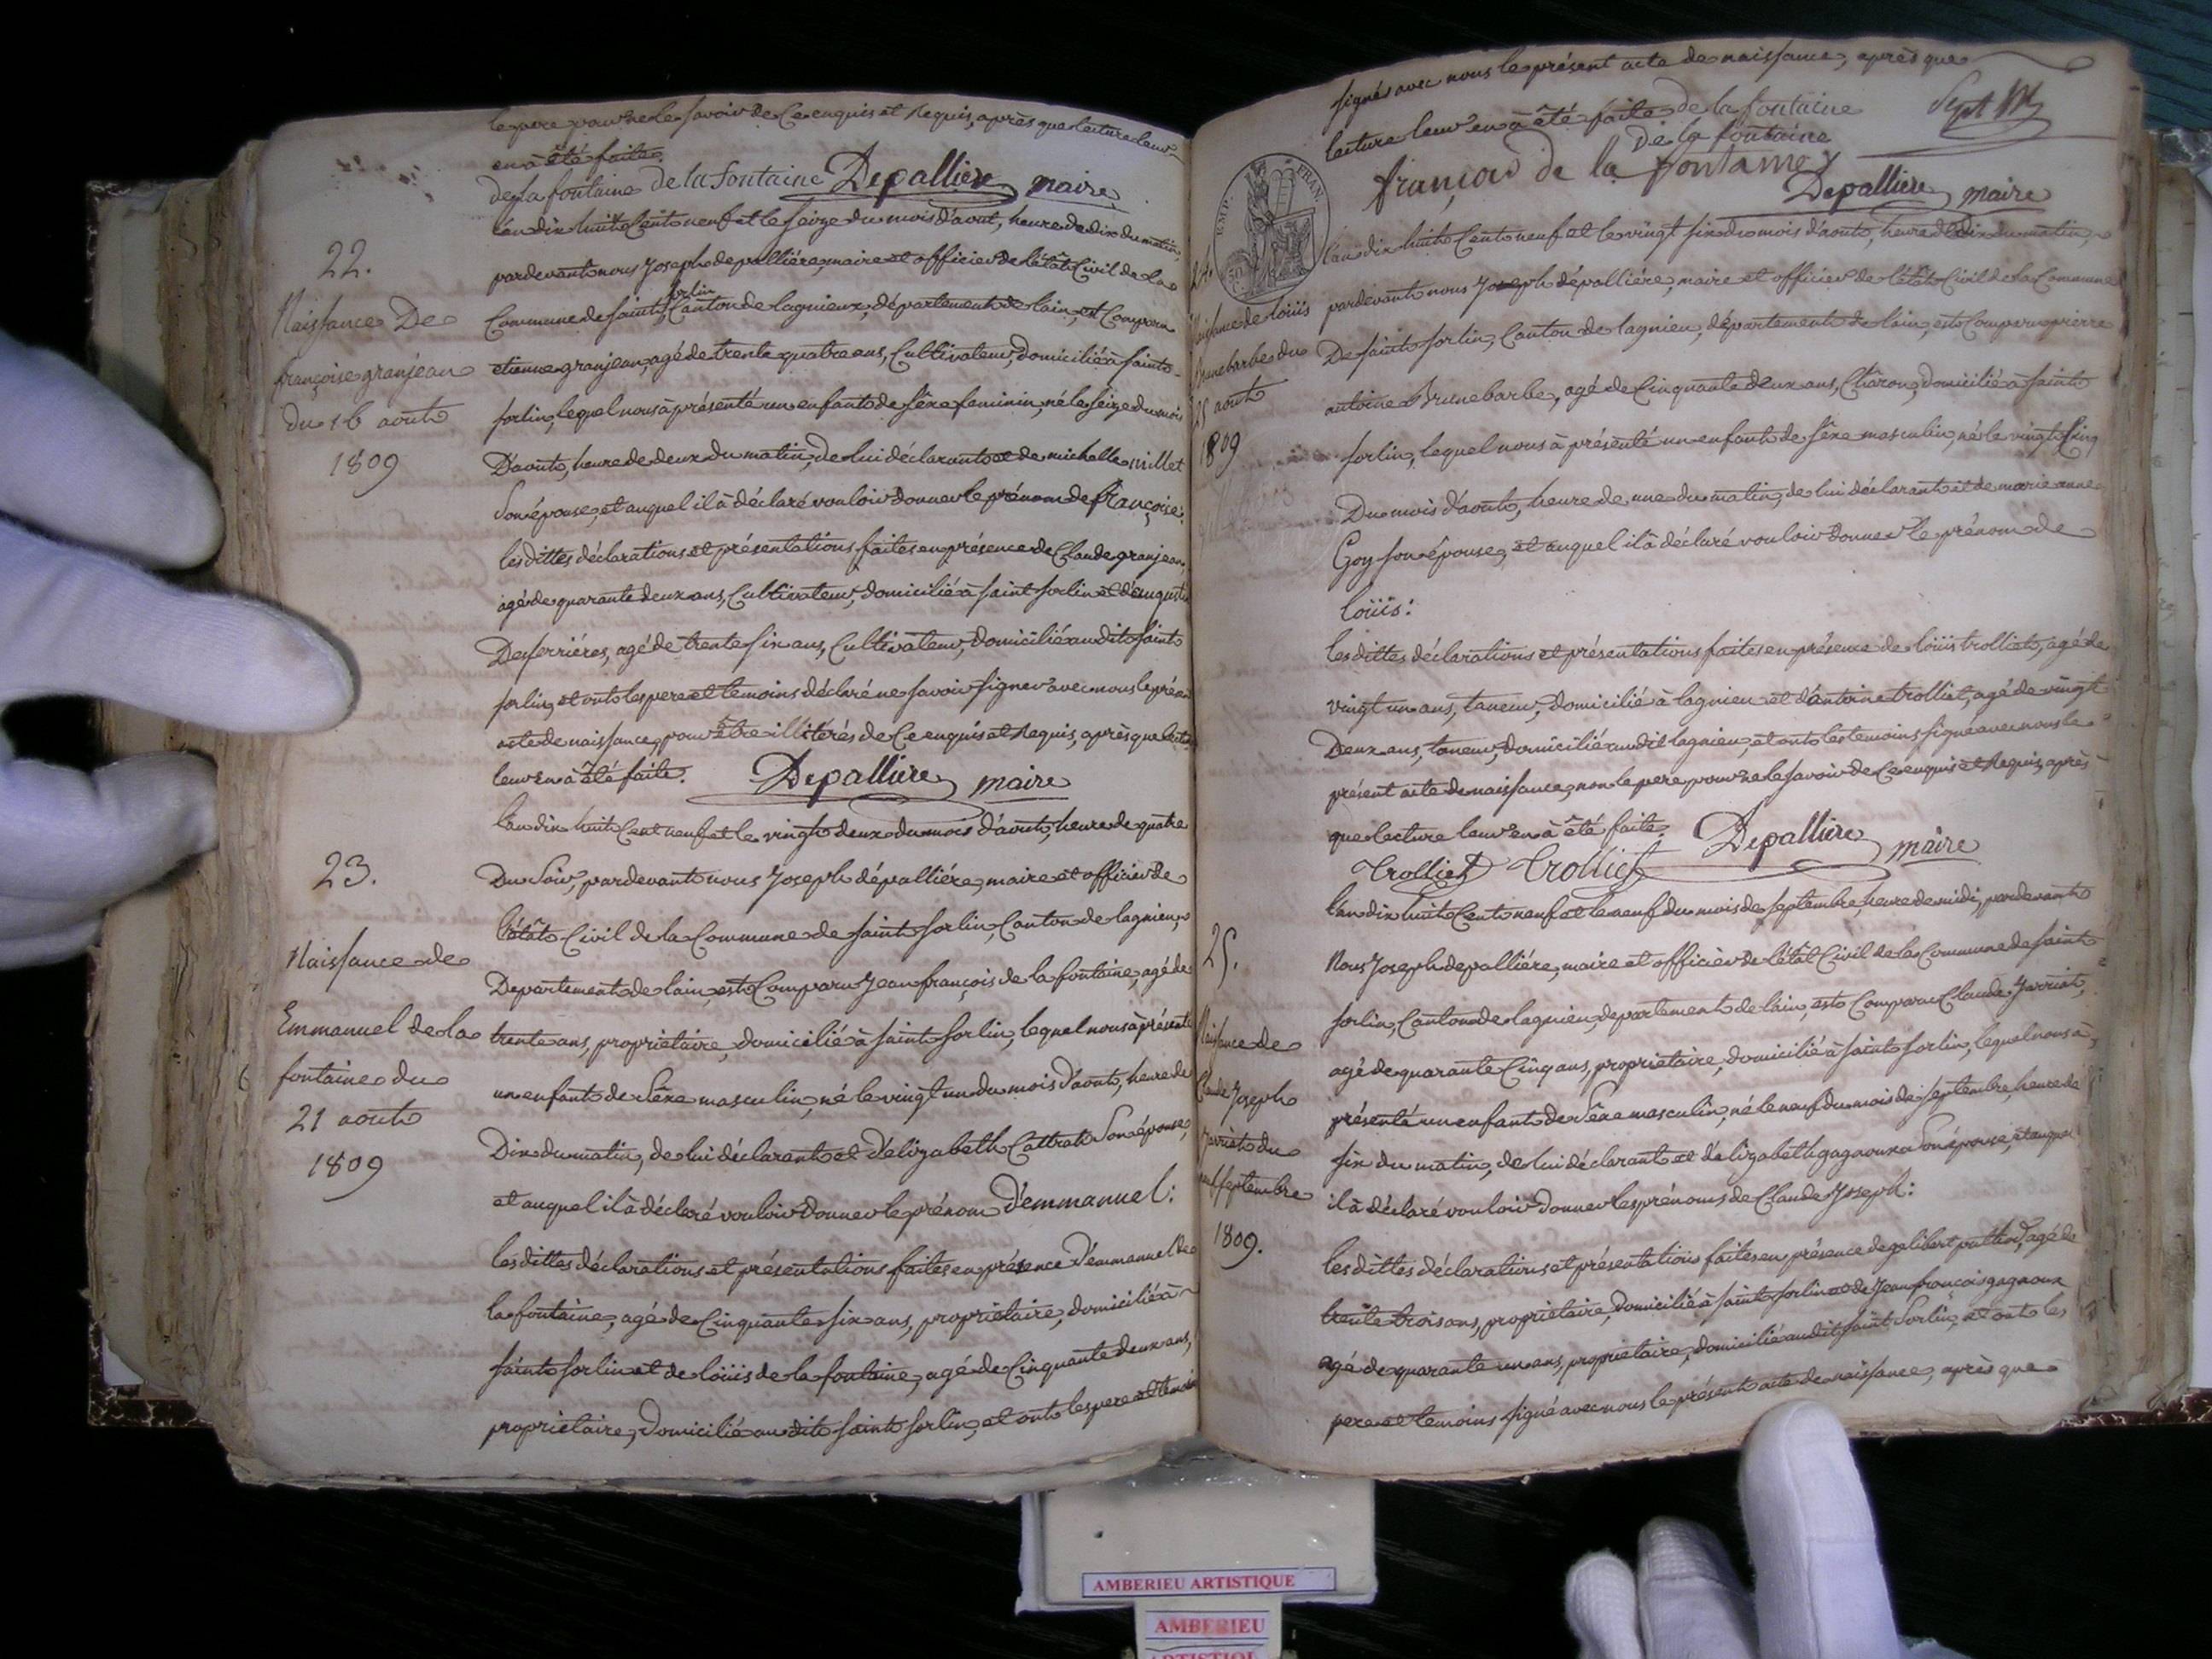 le pere pour ne le savoir de Ce enquis et Requis, après que lecture leur
en à été faite.
de la fontaine de la fontaine Depalliere maire
L'an dix huit Cent neuf et le seize du mois d'aout, heure de dix du matin,
22.
pardevant nous Joseph depalliére, maire et officier de l'état Civil de la
Commune de saint sorlin Canton de lagnieux, département de lain, est Comparu
Naissance De
françoise granjean
du 16 août
1809
etienne granjean, agé de trente quatre ans, Cultivateur, domicilié à saint-
sorlin, lequel nous à présenté un enfant de séxe feminin, né le seize du mois
D'août, heure de deux du matin, de lui déclarant et de michelle millet
Son épouse, et auquel il à déclaré vouloir donner le prénom de françoise:
les dittes déclarations et présentations faites en présence de Claude granjean,
agé de quarante deux ans, Cultivateur, domicilié à saint sorlin et d'augustin
Deferriéres, agé de trente six ans, Cultivateur, domicilié audit saint
sorlin, et ont les pere et temoins déclaré ne savoir signer avec nous le présent
acte de naissance, pour être illitérés de Ce enquis et Requis, après que lecture
leur en à été faite. Depalliere maire
L'an dix huit Cent neuf et le vingt deux du mois d'août, heure de quatre
23.
Du Soir, pardevant nous Joseph dépalliére, maire et officier de
l'état Civil de la Commune de saint sorlin, Canton de lagnieu,
Naissance de
Emmanuel de la
fontaine du
21 août
1809
Departement de lain, est Comparu Jean françois de la fontaine, agé de
trente ans, propriétaire, domicilié à saint sorlin, lequel nous à présenté
un enfant de Séxe masculin, né le vingt un du mois d'août, heure de
Dix du matin, de lui déclarant et d'élizabeth Cattrat Son épouse,
et auquel il à déclaré vouloir donner le prénom D'emmanuel:
les dittes déclarations et présentations faites en présence D'emmanuel de
la fontaine, agé de Cinquante six ans, propriétaire, domicilié à
saint sorlin et de loüis de la fontaine, agé de Cinquante deux ans,
propriétaire, domicilié au dit saint sorlin, et ont les pere et temoins
signés avec nous le présent acte de naissance, après que
lecture leur en à été faite de la fontaine
De la fontaine
françois de la fontaine
Depalliere maire
EMP. FRAN.
24.
Naissance de loüis
Brunebarbe du
25 août
1809
L'an dix huit Cent neuf et le vingt six du mois d'août, heure de dix du matin,
pardevant nous Joseph dépalliére, maire et officier de l'état Civil de la Commune
De saint sorlin, Canton de lagnieu, département de lain, est Comparu pierre
antoine Brunebarbe, agé de Cinquante deux ans, Charon, domicilié à saint
sorlin, lequel nous à présenté un enfant de séxe masculin, né le vingt Cinq
Du mois d'août, heure de une du matin, de lui déclarant et de marie anne
Goy son épouse, et auquel il à déclaré vouloir donner le prénom de
loüis:
les dittes déclarations et présentations faites en présence de loüis trolliet, agé de
vingt un ans, taneur, domicilié à lagnieu et d'antoine trolliet, agé de vingt
Deux ans, taneur, domicilié audit lagnieu, et ont les temoins signé avec nous le
présent acte de naissance, non le pere pour ne le savoir de Ce enquis et Requis, après
que lecture leur en à été faite. Depalliere maire
Trolliet Trolliet
L'an dix huit Cent neuf et le neuf du mois de septembre, heure de midi, pardevant
25.
Naissance de
Claude Joseph
Jarriat du
neuf septembre
1809.
Nous Joseph depalliére, maire et officier de l'état Civil de la Commune de saint
sorlin, Canton de lagnieu, departement de lain, est Comparu Claude Jarriat,
agé de quarante Cinq ans, propriétaire, domicilié à saint sorlin, lequel nous à
présenté un enfant de Séxe masculin, né le neuf du mois de septembre, heure de
six du matin, de lui déclarant et d'élizabeth gagnoux Son épouse, et auquel
il à déclaré vouloir donner les prénoms de Claude Joseph:
les dittes déclarations et présentations faites en présence de agé de
trente trois ans, propriétaire, domicilié à saint sorlin et de Jean françois gagnoux
agé de quarante un ans, propriétaire, domicilié audit saint Sorlin, et ont les
pere et temoins signé avec nous le présent acte de naissance, après que
AMBERIEU ARTISTIQUE
AMBERIEU
ARTISTIQUE